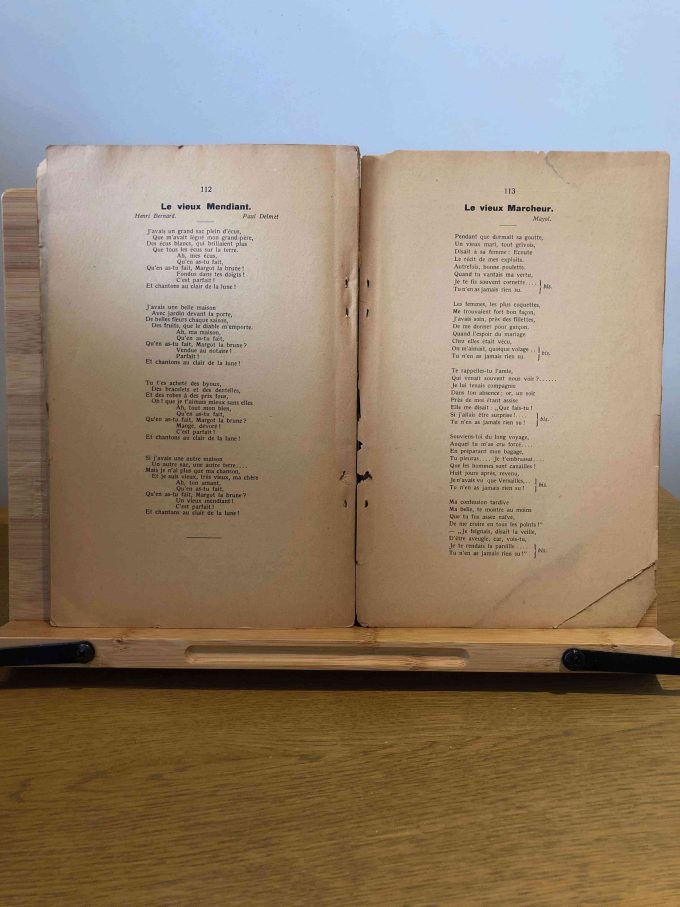 112
Le vieux Mendiant.
Henri Bernard. Paul Delmet
J'avais un grand sac plein d'écus,
Que m'avait légué mon grand-père,
Des écus blancs, qui brillaient plus
Que tous les écus sur la terre.
Ah, mes écus,
Qu'en as-tu fait,
Qu'en as-tu fait, Margot la brune!
Fondus dans tes doigts!
C'est parfait!
Et chantons au clair de la lune!
J'avais une belle maison
Avec jardin devant la porte,
De belles fleurs chaque saison,
Des fruits, que le diable m'emporte.
Ah, ma maison,
Qu'en as-tu fait,
Qu'en as-tu fait, Margot la brune?
Vendue au notaire!
Parfait!
Et chantons au clair de la lune!
Tu t'es acheté des byoux,
Des bracelets et des dentelles,
Et des robes à des prix fous,
Oh! que je t'aimais mieux sans elles
Ah, tout mon bien,
Qu'en as-tu fait,
Qu'en as-tu fait, Margot la brune?
Mangé, dévoré!
C'est parfait!
Et chantons au clair de la lune!
Si j'avais une autre maison
Un autre sac, une autre terre....
Mais je n'ai plus que ma chanson,
Et je suis vieux, très vieux, ma chère
Ah, ton amant,
Qu'en as-tu fait,
Qu'en as-tu fait, Margot la brune?
Un vieux mendiant!
C'est parfait!
Et chantons au clair de la lune!
113
Le vieux Marcheur.
Mayol.
Pendant que dormait sa goutte,
Un vieux mari, tout grivois,
Disait à sa femme: Ecoute
Le récit de mes exploits.
Autrefois, bonne poulette,
Quand tu vantais ma vertu,
Je te fis souvent cornette....
Tu n'en as jamais rien su. bis.
Les femmes, les plus coquettes,
Me trouvaient fort bon façon,
J'avais soin, près des fillettes,
De me donner pour garçon.
Quand l'espoir du mariage
Chez elles était vécu,
On m'aimait, quoique volage..
Tu n'en as jamais rien su. bis.
Te rappelles-tu l'amie,
Qui venait souvent nous voir?......
Je lui tenais compagnie
Dans ton absence; or, un soir
Près de moi étant assise
Elle me disait: „Que fais-tu!
Si j'allais être surprise!....
Tu n'en as jamais rien su! bis.
Souviens-toi du long voyage,
Auquel tu m'as cru forcé,
En préparant mon bagage,
Tu pleuras.... je t'embrassai....
Que les hommes sont canailles!
Huit jours après, revenu,
Je n'avais vu que Versailles,..
Tu n'en as jamais rien su! bis.
Ma confession tardive
Ma belle, te montre au moins
Que tu fus assez naïve,
De me croire en tous les points!"
— „Je feignais, disait la vieille,
D'être aveugle, car, vois-tu,
Je te rendais la pareille....
Tu n'en as jamais rien su!" bis.